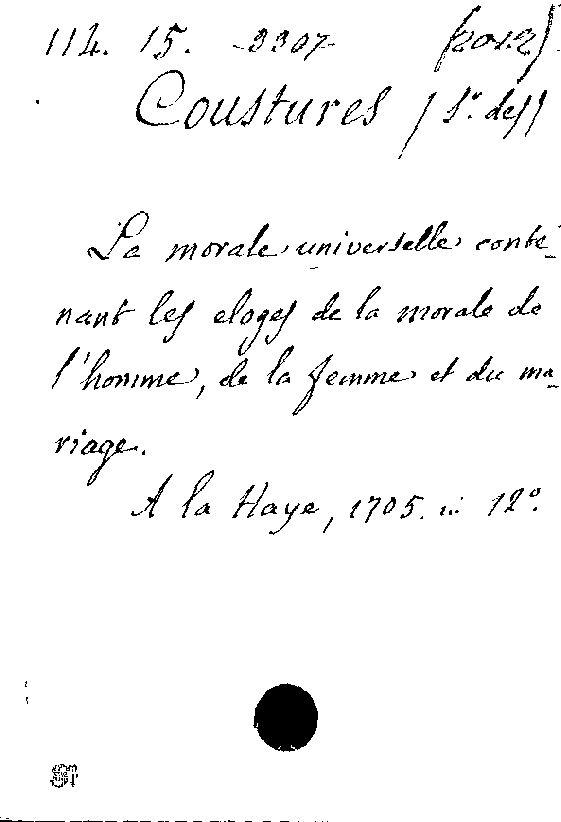 114. 15. -3307- (2012)
Coustures (Sr. des)
La morale universelle conte-
nant les eloges de la morale de
l'homme, de la femme et du ma-
riage.
A la Haye, 1705. in 12°.